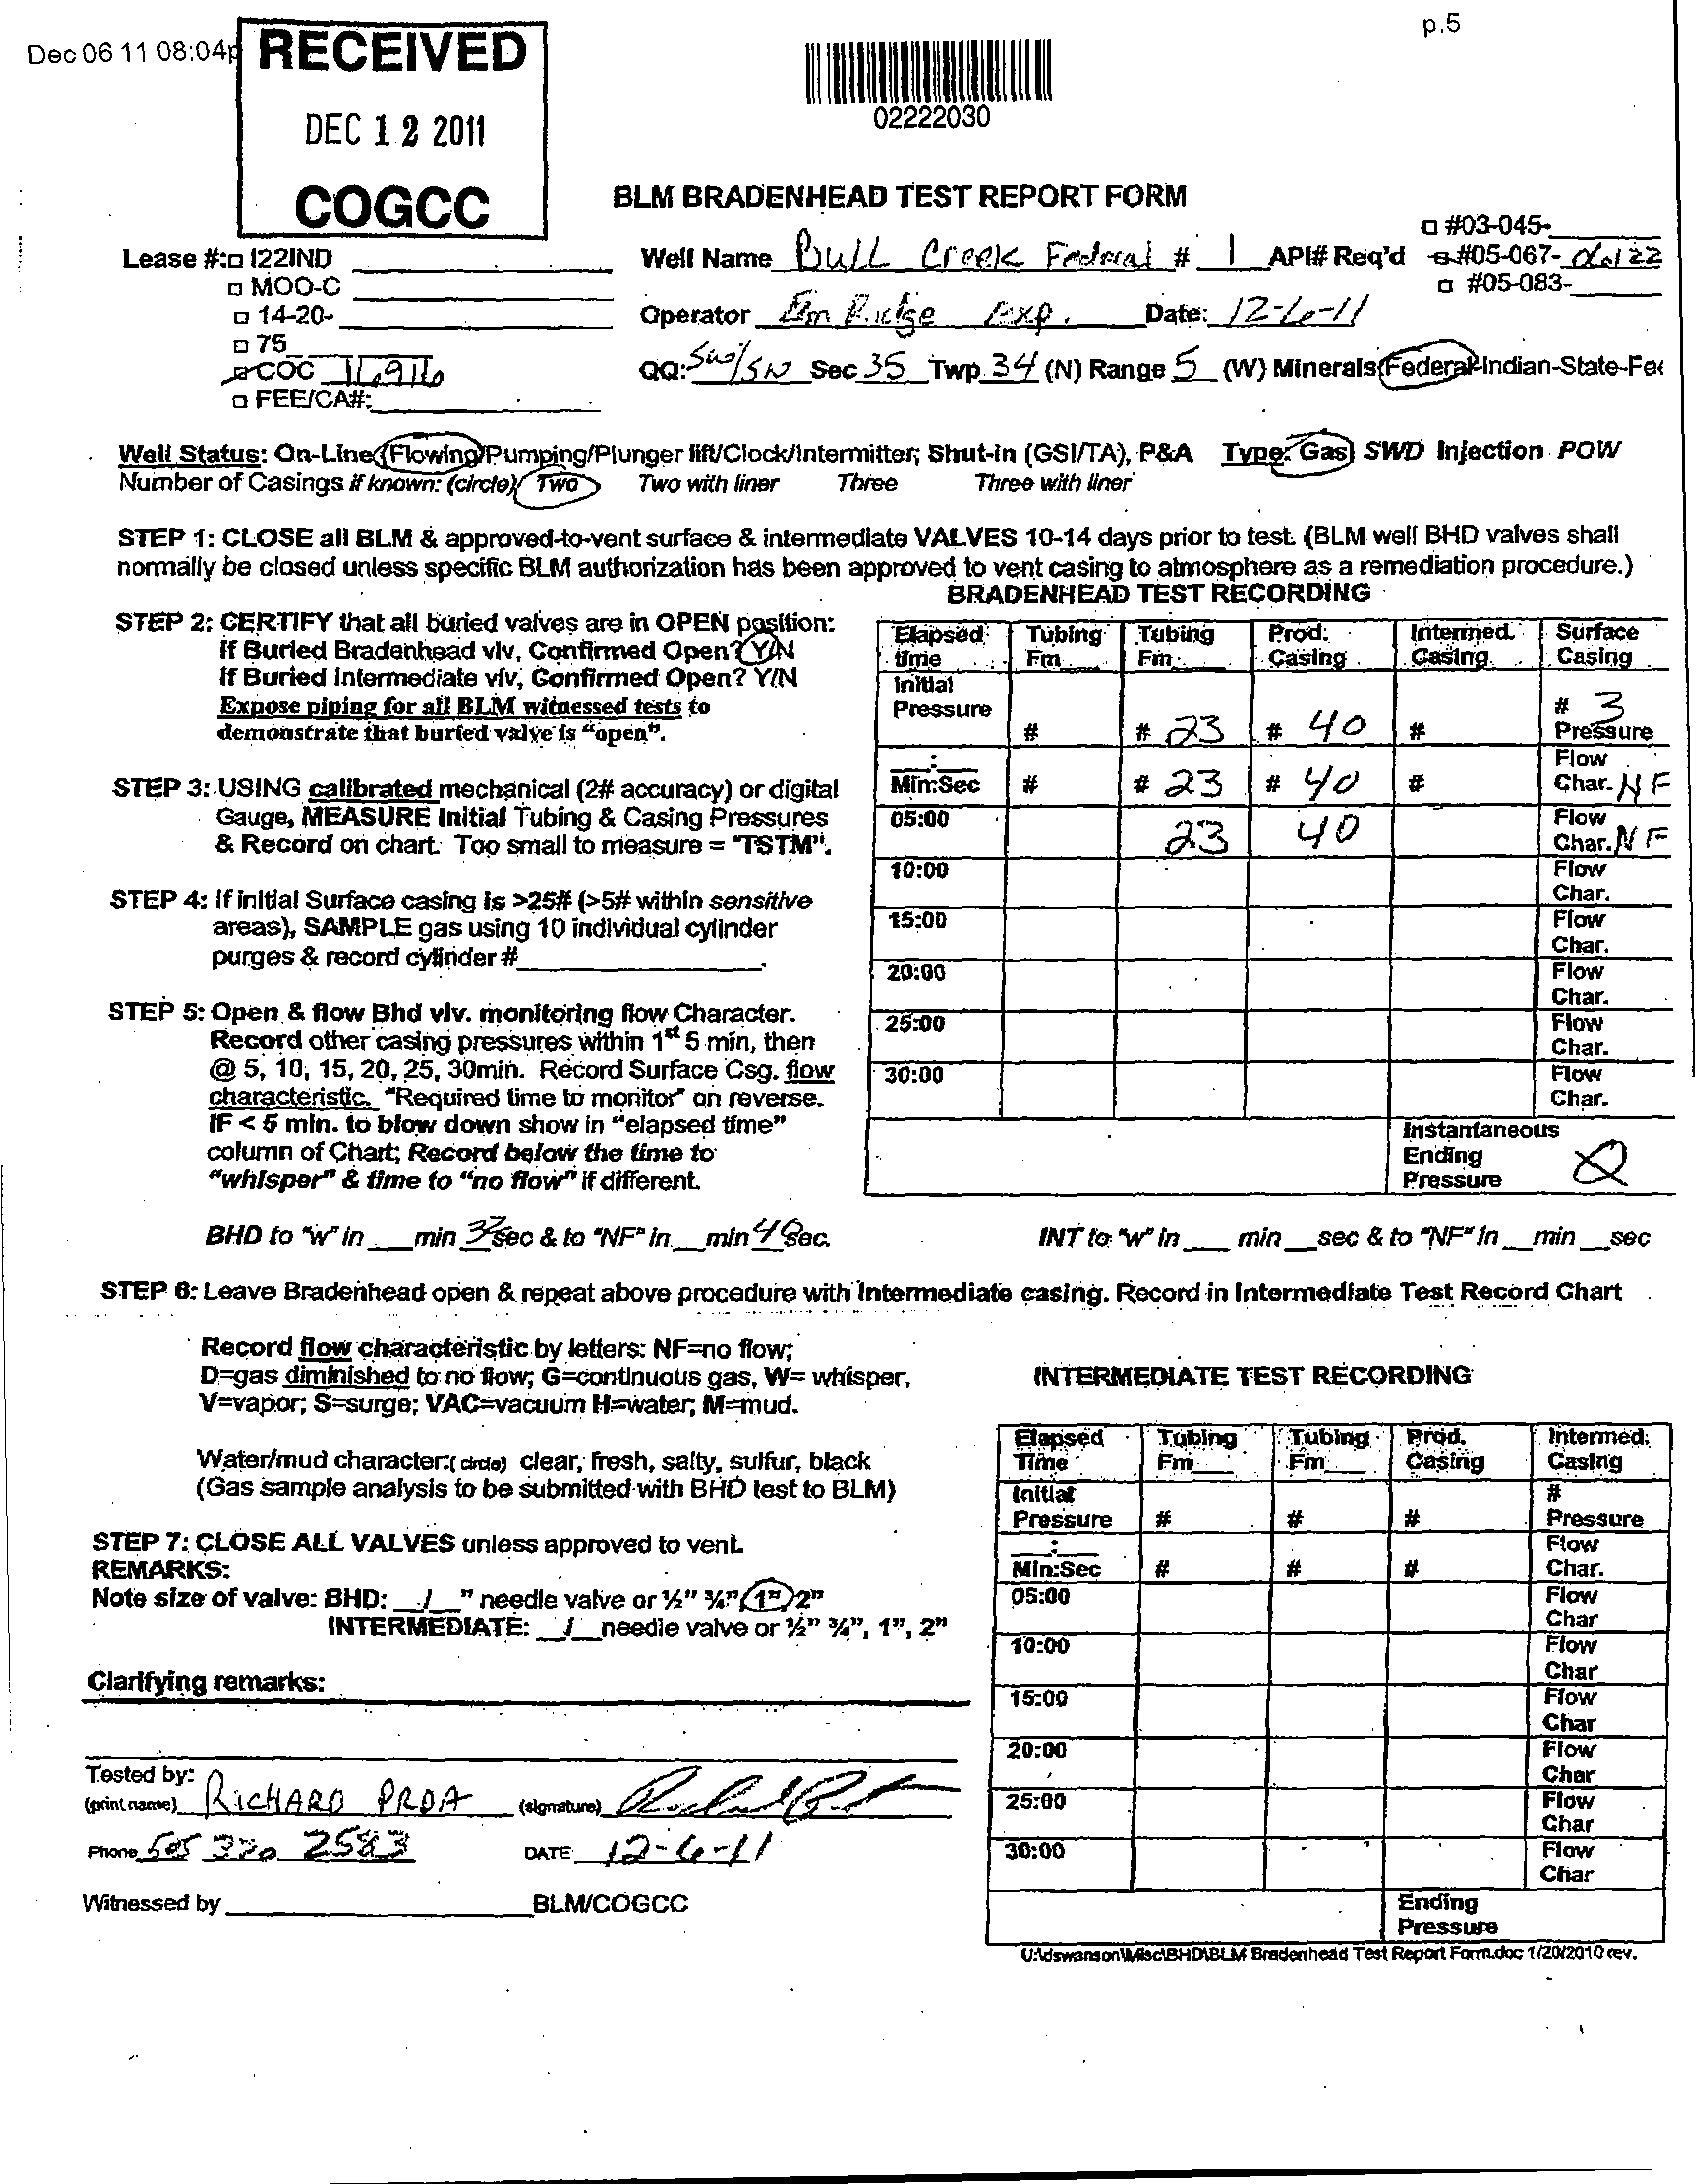 p.5
Dec 06 11 08:04p
RECEIVED
DEC 12 2011
COGCC
02222030
BLM BRADENHEAD TEST REPORT FORM
Lease #: I22IND
MOO-C
14-20-
75
COC
FEE/CA#:
Well Name Bull Creek Federal # 1 API# Req'd
#03-045-
#05-067-
#05-083-
Operator Elm Ridge Exp. Date: 12-6-11
QQ: SW/SW Sec 35 Twp 34 (N) Range 5 (W) Minerals Federal-Indian-State-Fee
Well Status: On-Line(Flowing/Pumping/Plunger lift/Clock/Intermitter; Shut-in (GSI/TA), P&A Type: Gas SWD Injection POW
Number of Casings if known: (circle) Two Two with liner Three Three with liner
STEP 1: CLOSE all BLM & approved-to-vent surface & intermediate VALVES 10-14 days prior to test. (BLM well BHD valves shall
normally be closed unless specific BLM authorization has been approved to vent casing to atmosphere as a remediation procedure.)
STEP 2: CERTIFY that all buried valves are in OPEN position:
If Buried Bradenhead vlv, Confirmed Open? Y/N
If Buried Intermediate vlv, Confirmed Open? Y/N
Expose piping for all BLM witnessed tests to
demonstrate that buried valve is "open".
STEP 3: USING calibrated mechanical (2# accuracy) or digital
Gauge, MEASURE Initial Tubing & Casing Pressures
& Record on chart. Too small to measure = "TSTM".
STEP 4: If initial Surface casing is >25# (>5# within sensitive
areas), SAMPLE gas using 10 individual cylinder
purges & record cylinder #
STEP 5: Open & flow Bhd vlv. monitoring flow Character.
Record other casing pressures within 1st 5 min, then
@ 5, 10, 15, 20, 25, 30min. Record Surface Csg. flow
characteristic. "Required time to monitor" on reverse.
IF < 5 min. to blow down show in "elapsed time"
column of Chart; Record below the time to
"whisper" & time to "no flow" if different.
BRADENHEAD TEST RECORDING
Elapsed time Tubing Fm Tubing Fm Prod. Casing Intermed. Casing Surface Casing
Initial Pressure # # 23 # 40 # # 3 Pressure
__:__ Min:Sec # # 23 # 40 # Flow Char. NF
05:00 23 40 Flow Char. NF
10:00 Flow Char.
15:00 Flow Char.
20:00 Flow Char.
25:00 Flow Char.
30:00 Flow Char.
Instantaneous Ending Pressure
BHD to "w" in __min sec & to "NF" in __min sec
INT to "w" in __ min __sec & to "NF" in __min __sec
STEP 6: Leave Bradenhead open & repeat above procedure with Intermediate casing. Record in Intermediate Test Record Chart
Record flow characteristic by letters: NF=no flow;
D=gas diminished to no flow; G=continuous gas, W= whisper,
V=vapor; S=surge; VAC=vacuum H=water; M=mud.
Water/mud character:(circle) clear, fresh, salty, sulfur, black
(Gas sample analysis to be submitted with BHD test to BLM)
STEP 7: CLOSE ALL VALVES unless approved to vent.
REMARKS:
Note size of valve: BHD: __/__" needle valve or ½" ¾", 1", 2"
INTERMEDIATE: __/__needle valve or ½" ¾", 1", 2"
Clarifying remarks:
INTERMEDIATE TEST RECORDING
Elapsed Time Tubing Fm Tubing Fm Prod. Casing Intermed. Casing
Initial Pressure # # # # Pressure
__:__ Min:Sec # # # Flow Char.
05:00 Flow Char
10:00 Flow Char
15:00 Flow Char
20:00 Flow Char
25:00 Flow Char
30:00 Flow Char
Ending Pressure
Tested by:
(print name) RICHARD PROA (signature)
Phone 505 320 2583 DATE 12-6-11
Witnessed by BLM/COGCC
U:\dswanson\Misc\BHD\BLM Bradenhead Test Report Form.doc 1/20/2010 rev.